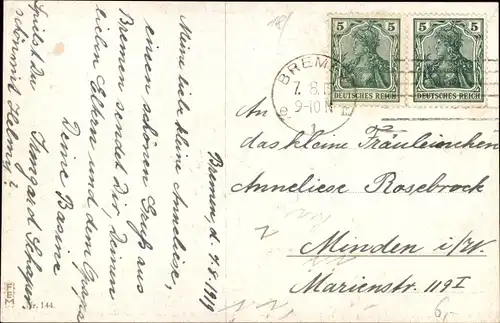 Bremen, d. 7.8.1919
Meine liebe kleine Anneliese,
einen schönen Gruß aus
Bremen sendet Dir, Deinen
lieben Eltern und dem Opapa
Deine Basine
Irmgard
Spielst Du
schön mit Helmy?
FEM
Nr. 144.
5 5
DEUTSCHES REICH DEUTSCHES REICH
BREMEN
7. 8. 1
9-10 N
1
An
das kleine Fräuleinchen
Anneliese Rosebrock
Minden i/W.
Marienstr. 119 I
6,-